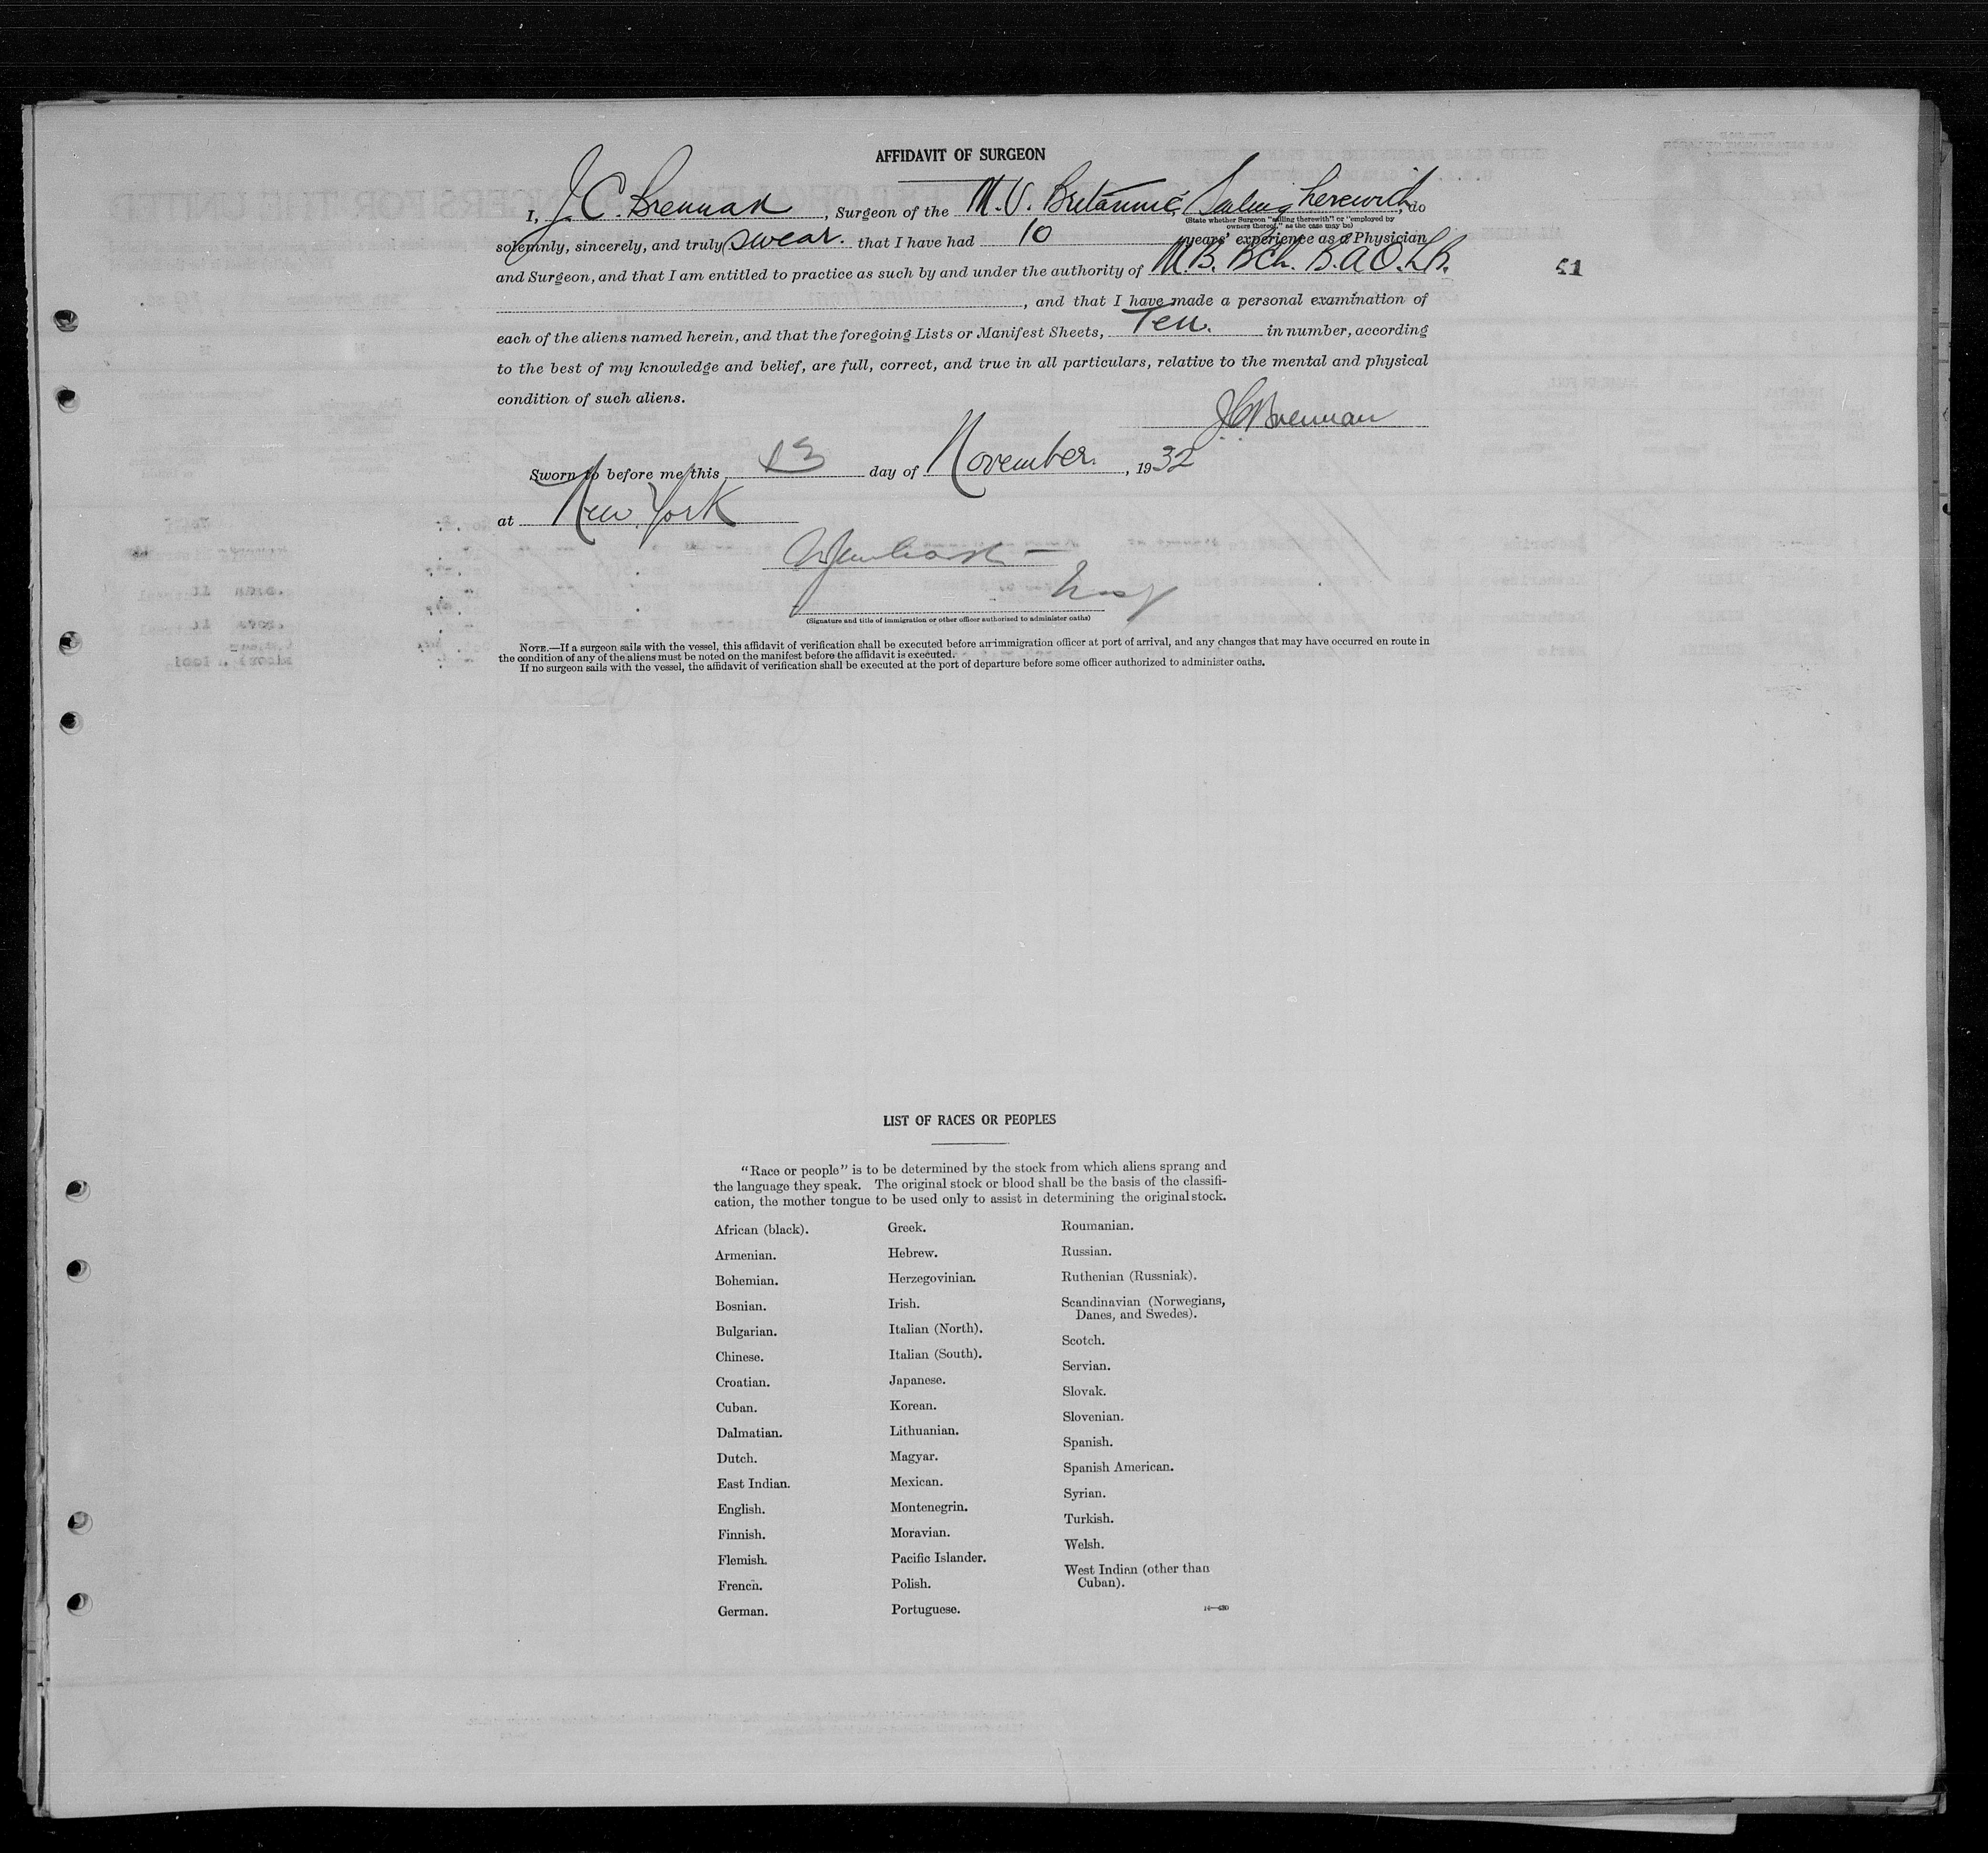 AFFIDAVIT OF SURGEON
I, J. C. Brennan, Surgeon of the M.V. Britannic, Sailing herewith, do
(State whether Surgeon "sailing therewith" or "employed by
owners thereof," as the case may be)
solemnly, sincerely, and truly swear. that I have had 10 years' experience as a Physician
and Surgeon, and that I am entitled to practice as such by and under the authority of M.B. BCh. B.A.O.
51
, and that I have made a personal examination of
each of the aliens named herein, and that the foregoing Lists or Manifest Sheets, Ten. in number, according
to the best of my knowledge and belief, are full, correct, and true in all particulars, relative to the mental and physical
condition of such aliens.
J C Brennan
Sworn to before me this 13 day of November., 1932
at New York
(Signature and title of immigration or other officer authorized to administer oaths)
NOTE.—If a surgeon sails with the vessel, this affidavit of verification shall be executed before an immigration officer at port of arrival, and any changes that may have occurred en route in
the condition of any of the aliens must be noted on the manifest before the affidavit is executed.
If no surgeon sails with the vessel, the affidavit of verification shall be executed at the port of departure before some officer authorized to administer oaths.
LIST OF RACES OR PEOPLES
"Race or people" is to be determined by the stock from which aliens sprang and
the language they speak. The original stock or blood shall be the basis of the classifi-
cation, the mother tongue to be used only to assist in determining the original stock.
African (black).
Armenian.
Bohemian.
Bosnian.
Bulgarian.
Chinese.
Croatian.
Cuban.
Dalmatian.
Dutch.
East Indian.
English.
Finnish.
Flemish.
French.
German.
Greek.
Hebrew.
Herzegovinian.
Irish.
Italian (North).
Italian (South).
Japanese.
Korean.
Lithuanian.
Magyar.
Mexican.
Montenegrin.
Moravian.
Pacific Islander.
Polish.
Portuguese.
Roumanian.
Russian.
Ruthenian (Russniak).
Scandinavian (Norwegians,
Danes, and Swedes).
Scotch.
Servian.
Slovak.
Slovenian.
Spanish.
Spanish American.
Syrian.
Turkish.
Welsh.
West Indian (other than
Cuban).